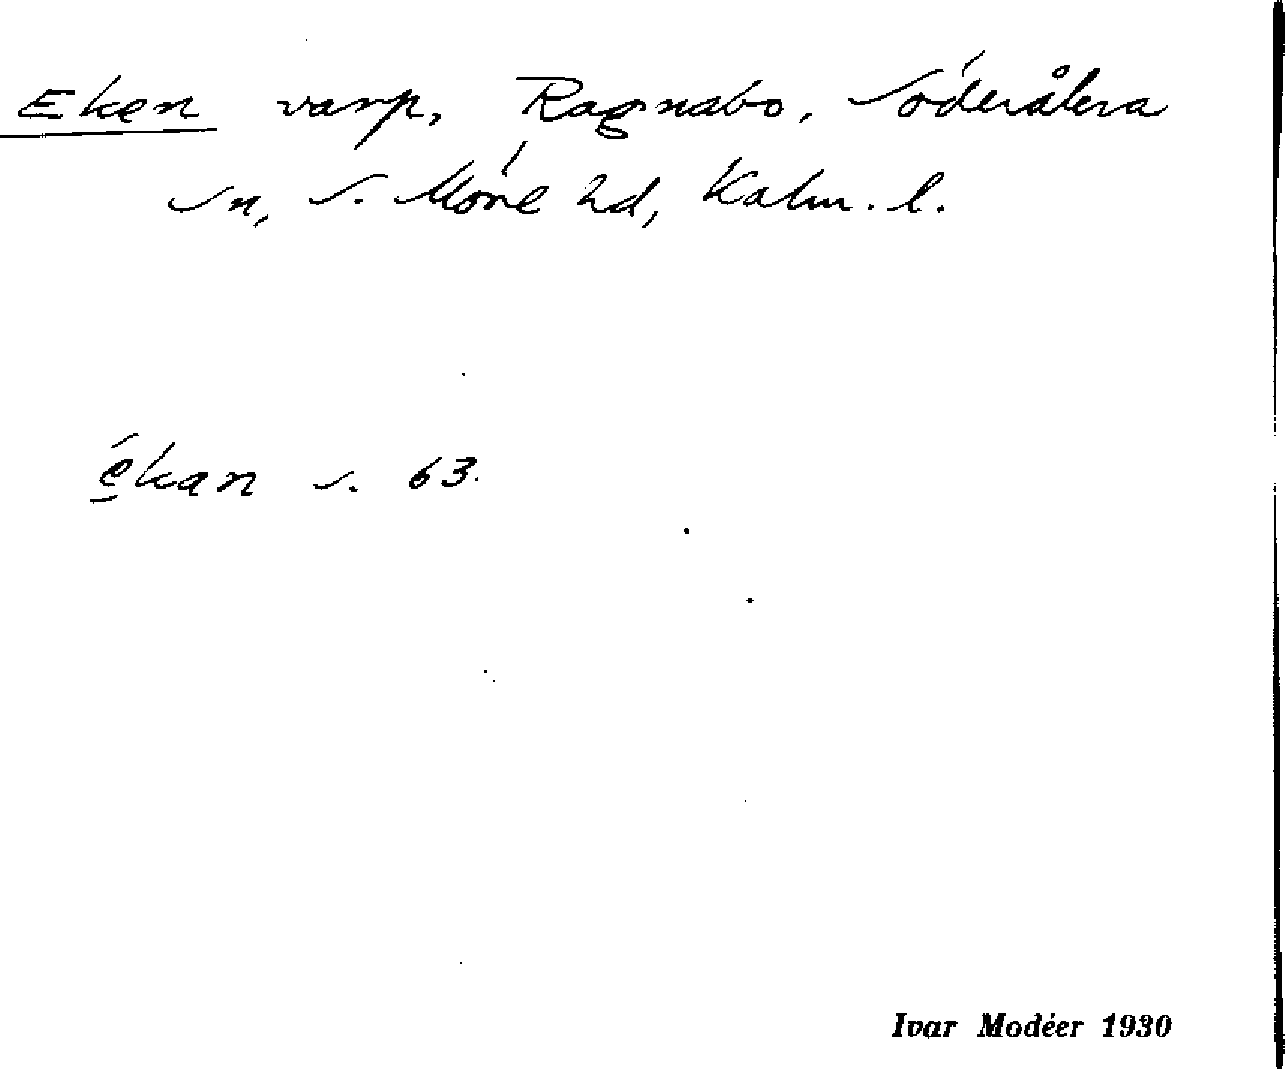 Eken varp, Ragnabo, Söderåkra
sn, S. Möre hd, Kalm. l.
ékan s. 63.
Ivar Modéer 1930